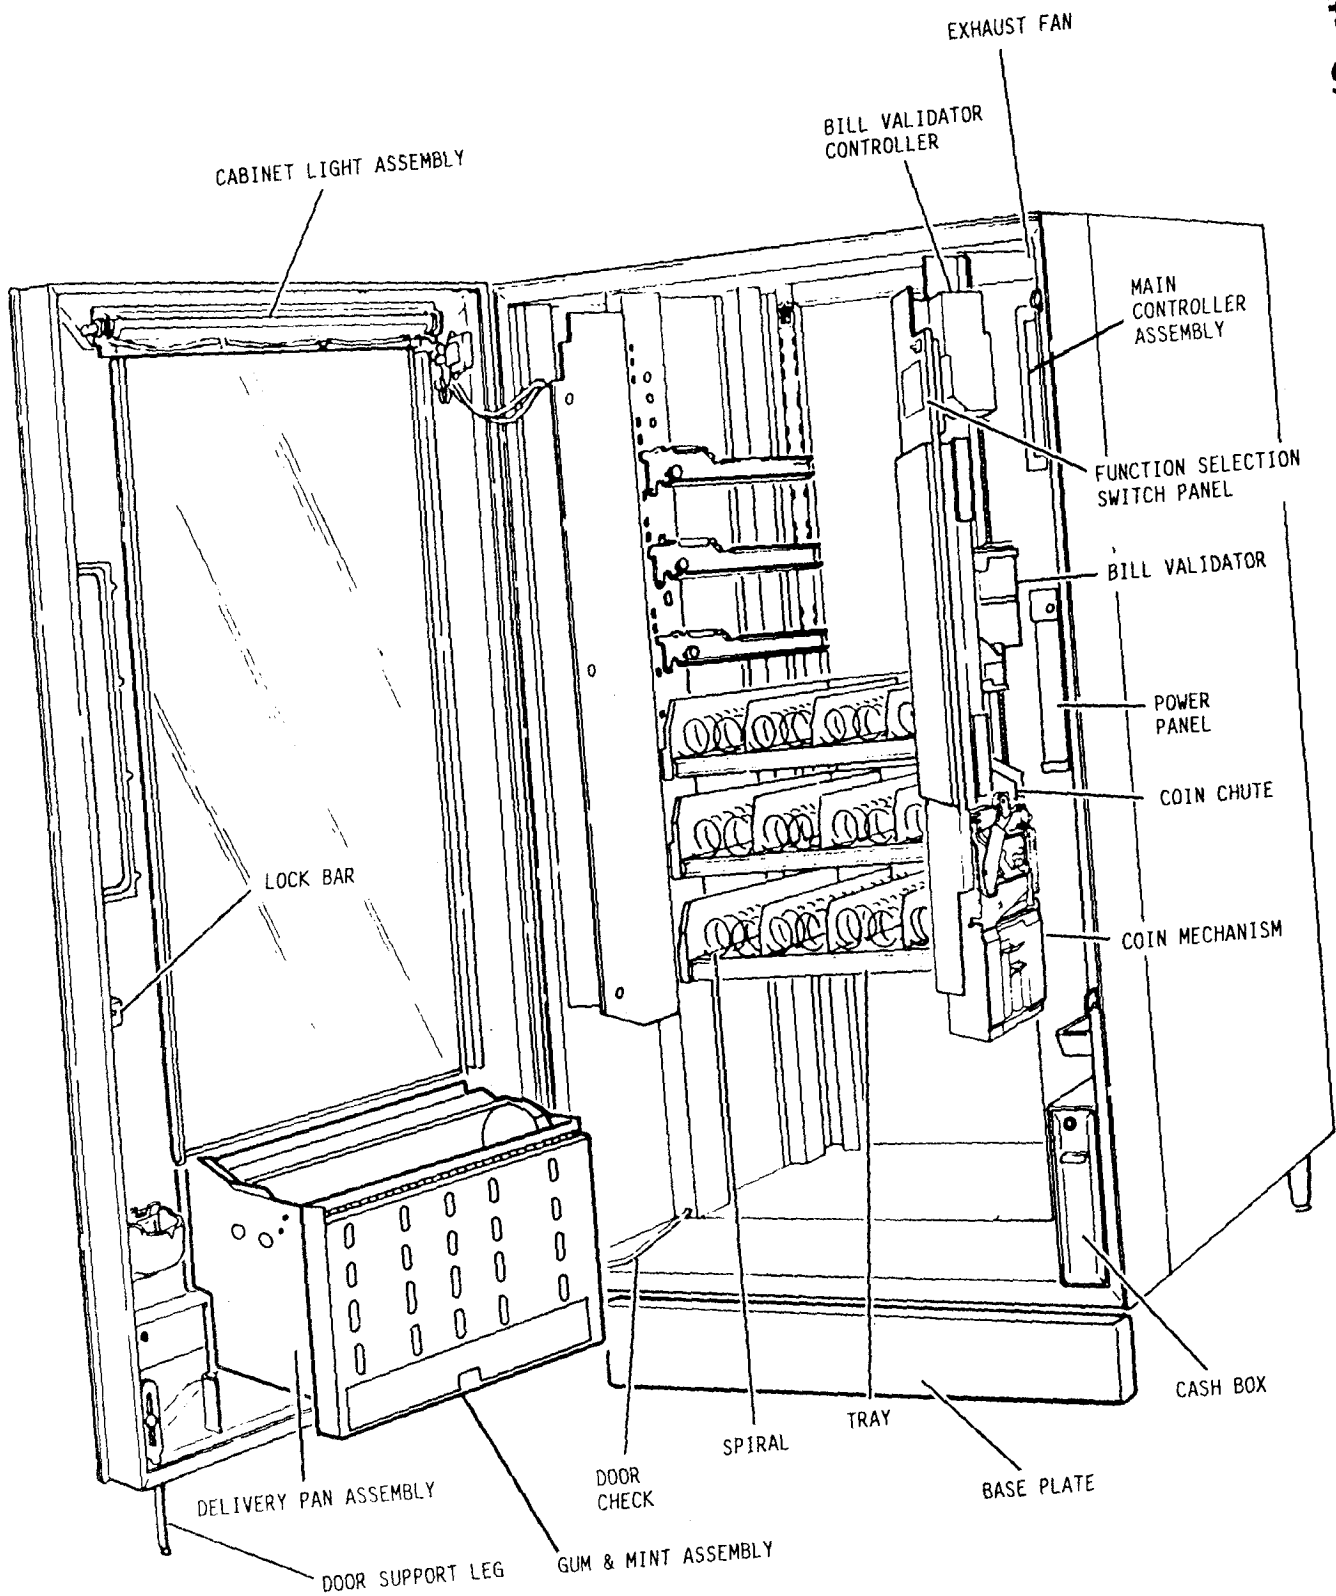 EXHAUST FAN
BILL VALIDATOR
CONTROLLER
CABINET LIGHT ASSEMBLY
MAIN
CONTROLLER
ASSEMBLY
FUNCTION SELECTION
SWITCH PANEL
BILL VALIDATOR
POWER
PANEL
COIN CHUTE
LOCK BAR
COIN MECHANISM
CASH BOX
TRAY
SPIRAL
BASE PLATE
DOOR
CHECK
DELIVERY PAN ASSEMBLY
GUM & MINT ASSEMBLY
DOOR SUPPORT LEG